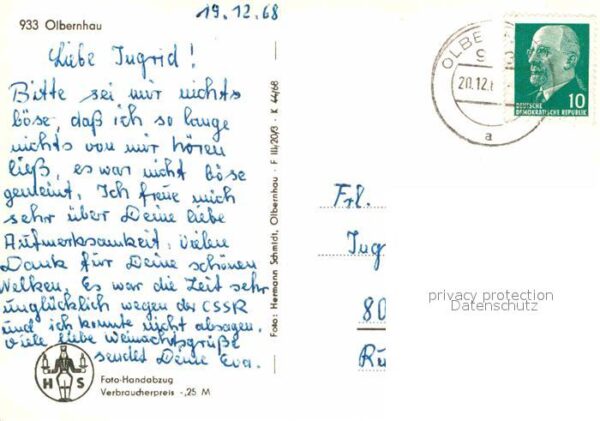 19.12.68
933 Olbernhau
Liebe Ingrid!
Bitte sei mir nichts
böse, daß ich so lange
nichts von mir hören
ließ, es war nicht böse
gemeint. Ich freue mich
sehr über Deine liebe
Aufmerksamkeit, vielen
Dank für Deine schönen
Nelken. Es war die Zeit sehr
unglücklich wegen der CSSR
und ich konnte nicht absagen.
Viele liebe Weihnachtsgrüße
sendet Deine Eva.
H S
Foto-Handabzug
Verbraucherpreis -,25 M
Foto: Hermann Schmidt, Olbernhau · F III/20/3 · K 44/68
OLBE
9
20.12.
a
10
DEUTSCHE
DEMOKRATISCHE REPUBLIK
Frl.
Ingr
privacy protection
Datenschutz
80
Ru